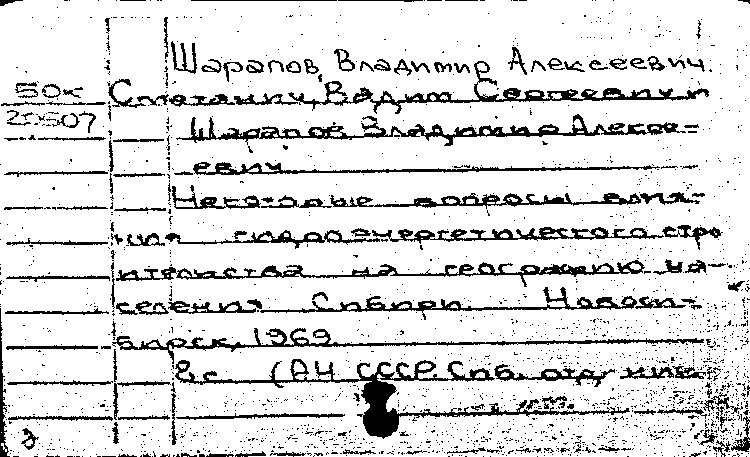 Шарапов, Владимир Алексеевич.
50к Сметанич, Вадим Сергеевич и
20507 Шарапов Владимир Алексе-
евич
Некоторые вопросы влия-
ния гидроэнергетического стро
ительства на географию на-
селения Сибири. Новоси-
бирск, 1969.
8 с. (АН СССР. Сиб. отд.